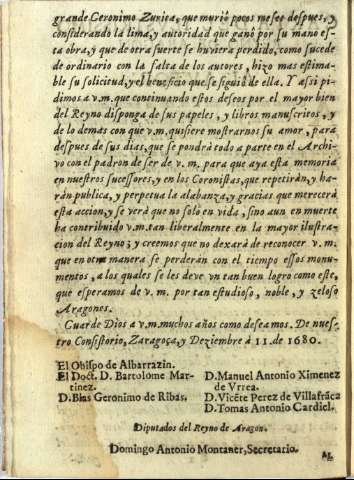 grande Geronimo Zurita, que muriò pocos meses despues, y
considerando la lima, y autoridad que ganò por su mano es-
ta obra, y que de otra suerte se huviera perdido, como sucede
de ordinario con la falta de los autores, hizo mas estima-
ble su solicitud, y el beneficio que se siguiò de ella. Y assi pi-
dimos a v.m. que continuando estos deseos por el mayor bien
del Reyno disponga de sus papeles, y libros manuscritos, y
de lo demás con que v.m. quisiere mostrarnos su amor, para
despues de sus dias, que se pondrà todo a parte en el Archi-
vo con el padron de ser de v.m. para que aya esta memoria
en nuestros sucessores, y en los Coronistas, que repetiràn, y ha-
ràn publica, y perpetua la alabança, y gracias que merecerà
esta accion, y se verà que no solo en vida, sino aun en muerte
ha contribuido v.m. tan liberalmente en la mayor ilustra-
cion del Reyno; y creemos que no dexarà de reconocer v.m.
que en otra manera se perderàn con el tiempo essos monu-
mentos, a los quales se les deve vn tan buen logro como este,
que esperamos de v.m. por tan estudioso, noble, y zeloso
Aragones.
Guarde Dios a v.m. muchos años como deseamos. De nues-
tro Consistorio, Zaragoça, y Deziembre à 11. de 1680.
El Obispo de Albarrazin.
El Doct. D. Bartolome Mar-
tinez.
D. Blas Geronimo de Ribas.
D. Manuel Antonio Ximenez
de Vrrea.
D. Vicẽte Perez de Villafrãca
D. Tomas Antonio Cardiel.
Diputados del Reyno de Aragon.
Domingo Antonio Montaner, Secretario.
AL